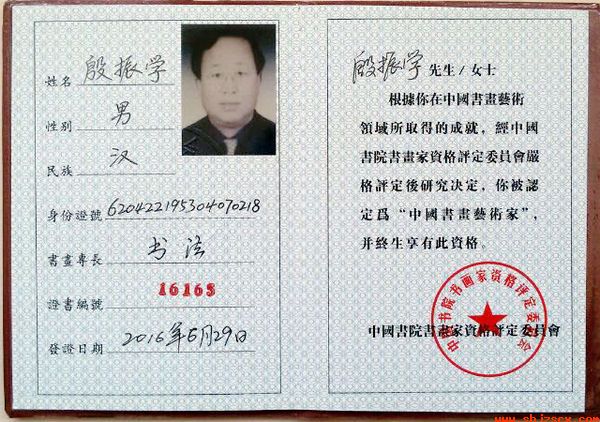 姓名 殷振学
性别 男
民族 汉
身份證號 620422195304070218
書畫專長 书法
證書編號 16165
發證日期 2016年6月29日
殷振学 先生/女士
根據你在中國書畫藝術
領域所取得的成就，經中國
書院書畫家資格評定委員會嚴
格評定後研究决定，你被認
定爲“中國書畫藝術家”，
并終生享有此資格。
中國書院書畫家資格評定委員會
中国书院书画家资格评定委员会